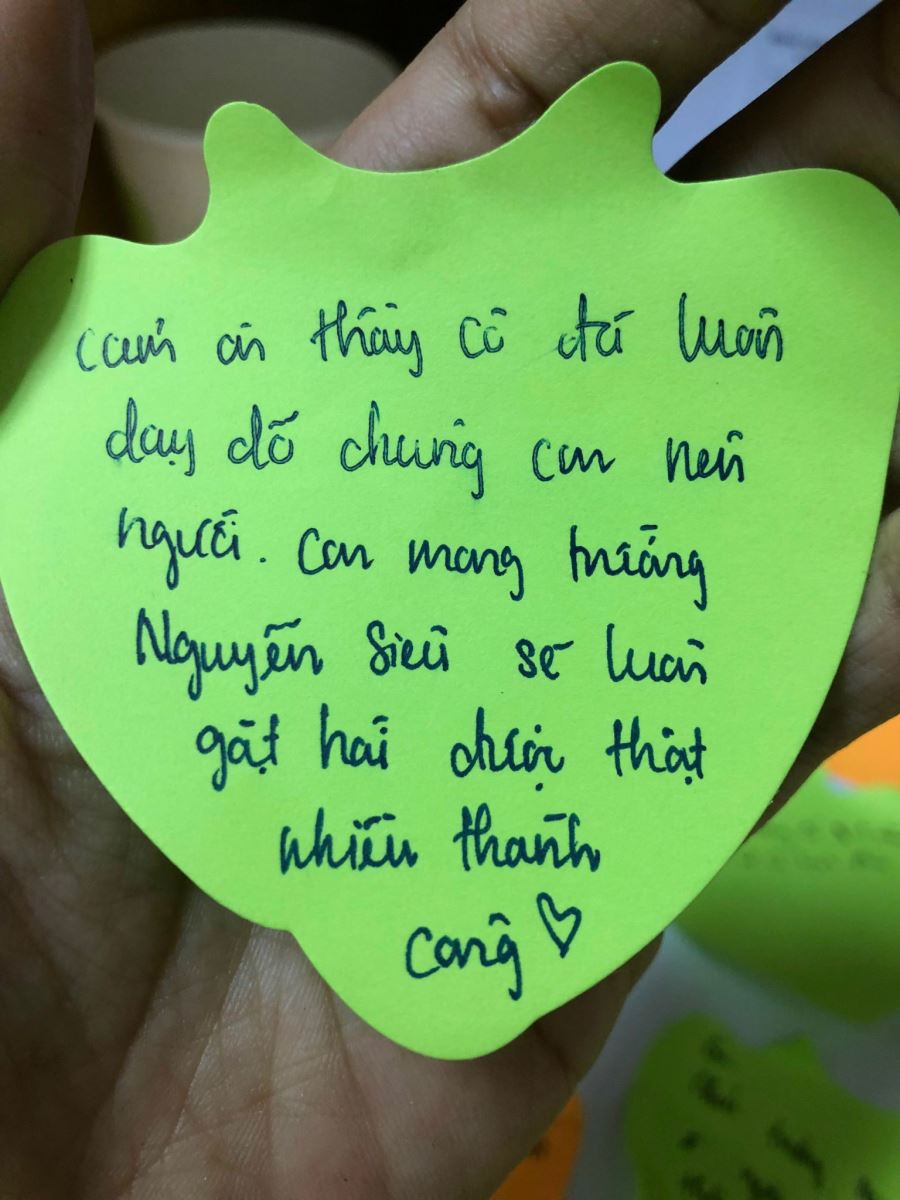 cảm ơn thầy cô đã luôn
dạy dỗ chúng con nên
người. Con mong trường
Nguyễn Siêu sẽ luôn
gặt hái được thật
nhiều thành
công ♡